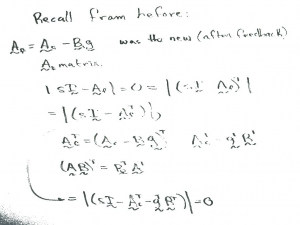 Recall from before:
A_p = A_c - B g was the new (after feedback)
A_c matrix.
|sI - A_p| = 0 = |(sI - A_p)^T|
= |(sI - A_p^T)|
A_p^T = (A_c - B g)^T A_c^T - g^T B^T
(AB)^T = B^T A^T
= |(sI - A_c^T - g^T B^T)| = 0